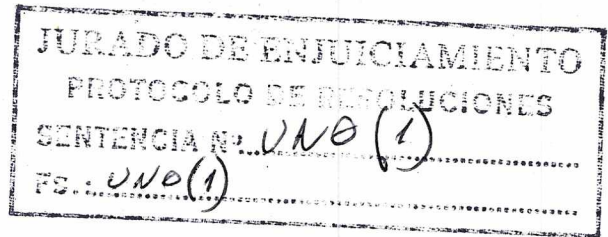 JURADO DE ENJUICIAMIENTO
PROTOCOLO DE RESOLUCIONES
SENTENCIA Nº UNO (1)
FS.: UNO (1)